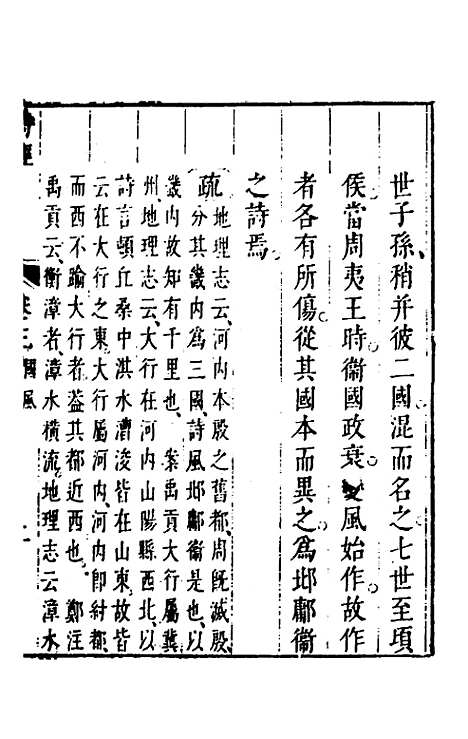 世子孫、稍并彼二國。混而名之。七世至頃
侯。當周夷王時。衞國政衰。變風始作。故作
者各有所傷。從其國本而異之。爲邶鄘衞
之詩焉。
疏 地理志云、河內本殷之舊都、周旣滅殷、
分其畿內爲三國、詩風邶鄘衞是也、以
畿內故知有千里也、案禹貢大行屬冀
州、地理志云、大行在河內山陽縣西北、以
詩言頓丘桑中淇水漕浚皆在山東、故皆
云在大行之東、大行屬河內、河內卽紂都、
而西不踰大行者、葢其都近西也、鄭注
禹貢云、衡漳者、漳水橫流、地理志云漳水